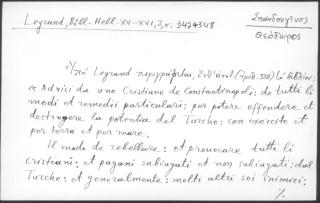 Legrand, Bibl. Hell. XV-XVI, 3, σ. 347 348
Σπανδουγίνος
Θεόδωρος
Ὑπό Legrand περιγράφεται,
Advisi da uno Cristiano de Constantinopoli: de tutti li
modi et remedii particulari: per potere offendere et
destrugere la potentia del Turcho: con exercito et
per terra et per mare.
Il modo de rebellare: et provocare tutti li
Cristiani: et pagani subiugati et non subiugati: dal
Turcho: et generalmente: molti altri soi inimici: